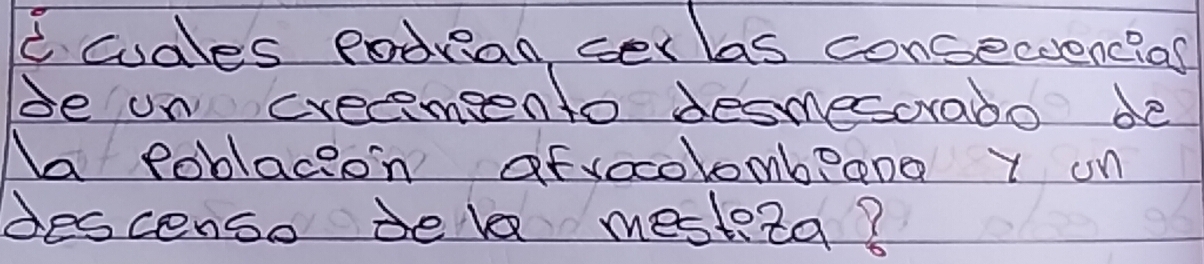 ¿ cuales podrian ser las consecuencias
de un crecimiento desmesurabo de
la población afrocolombiana y un
descenso de la mestiza?